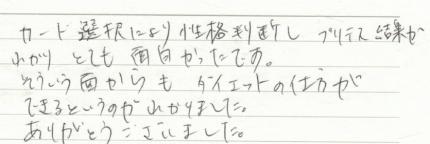 カード選択により性格判断し プリテス結果が
わかり とても 面白かったです。
そういう面からも ダイエットの仕方が
できるというのがわかりました。
ありがとうございました。